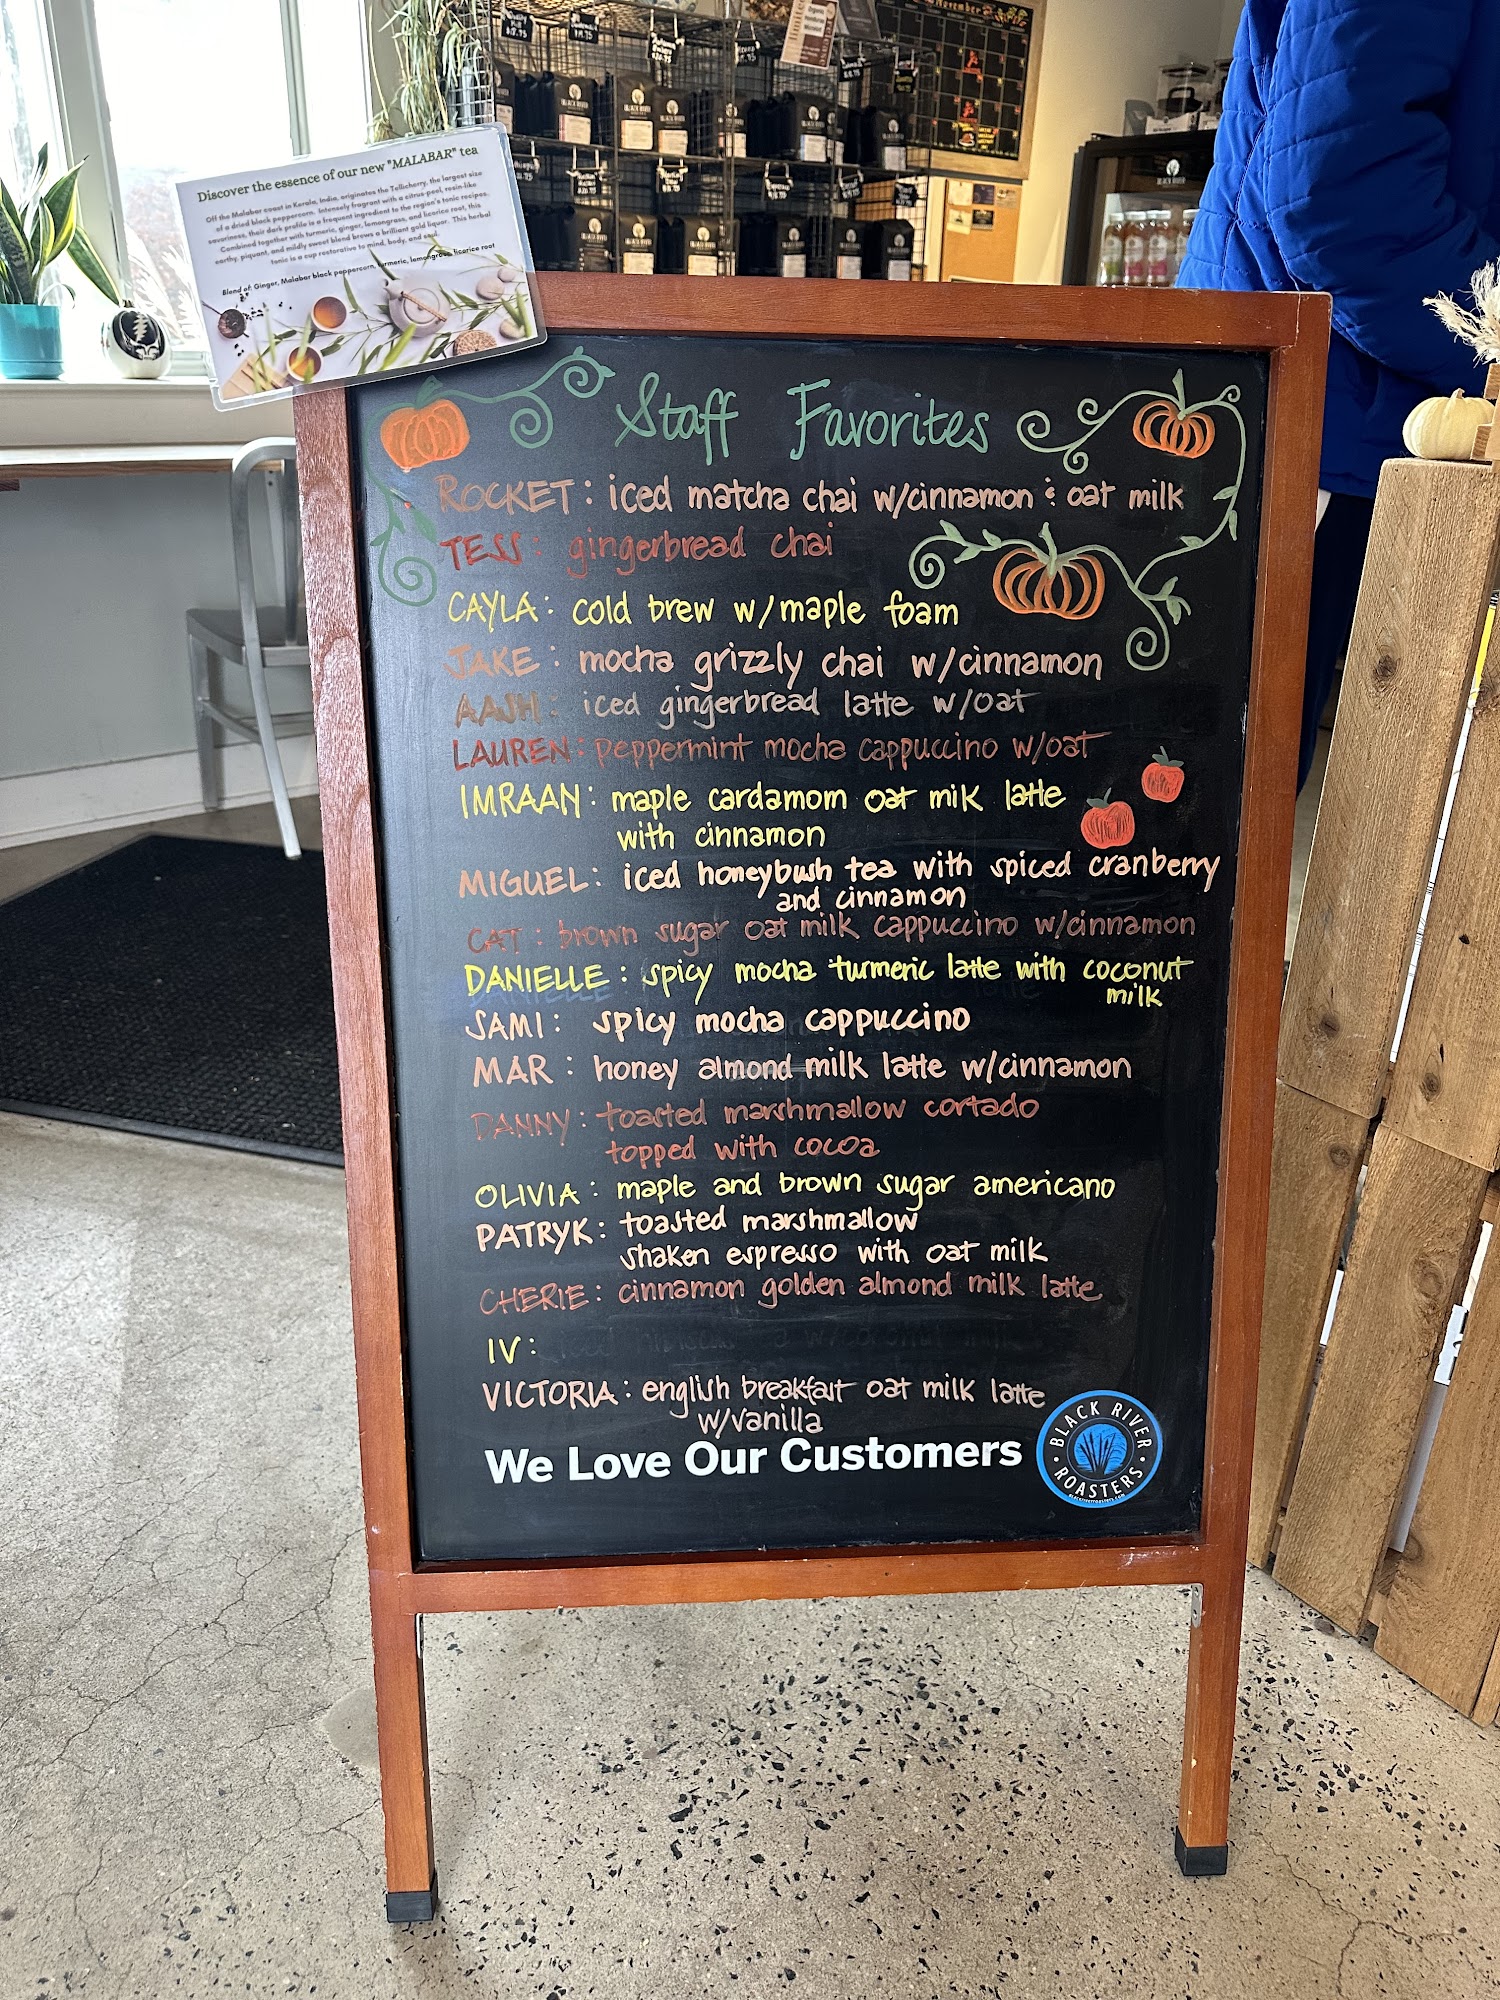 November
BLACK RIVER
Discover the essence of our new "MALABAR" tea
Off the Malabar coast in Kerala, India, originates the Tellicherry, the largest size
of a dried black peppercorn. Intensely fragrant with a citrus-peel, resin-like
savoriness, their dark profile is a frequent ingredient to the region's tonic recipes.
Combined together with turmeric, ginger, lemongrass, and licorice root, this
earthy, piquant, and mildly sweet blend brews a brilliant gold liquor. This herbal
tonic is a cup restorative to mind, body, and soul.
Blend of: Ginger, Malabar black peppercorn, turmeric, lemongrass, licorice root
Staff Favorites
ROCKET: iced matcha chai w/cinnamon & oat milk
TESS: gingerbread chai
CAYLA: cold brew w/maple foam
JAKE: mocha grizzly chai w/cinnamon
AASH: iced gingerbread latte w/oat
LAUREN: peppermint mocha cappuccino w/oat
IMRAAN: maple cardamom oat milk latte
with cinnamon
MIGUEL: iced honeybush tea with spiced cranberry
and cinnamon
CAT: brown sugar oat milk cappuccino w/cinnamon
DANIELLE: spicy mocha turmeric latte with coconut
milk
SAMI: spicy mocha cappuccino
MAR: honey almond milk latte w/cinnamon
DANNY: toasted marshmallow cortado
topped with cocoa
OLIVIA: maple and brown sugar americano
PATRYK: toasted marshmallow
shaken espresso with oat milk
CHERIE: cinnamon golden almond milk latte
IV:
VICTORIA: english breakfast oat milk latte
w/vanilla
We Love Our Customers
BLACK RIVER
ROASTERS